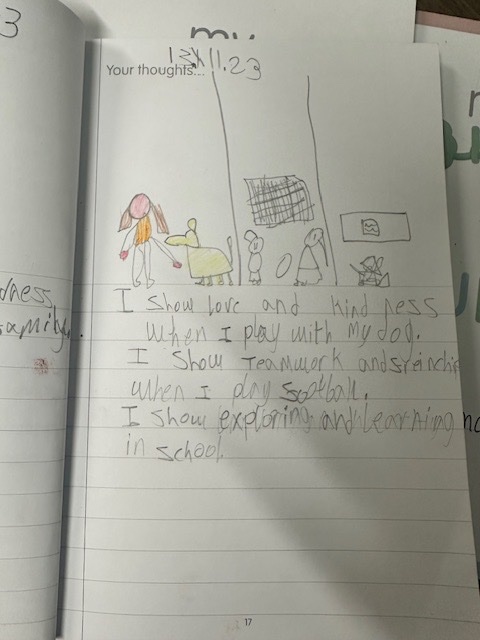 3
my
13.11.23
Your thoughts...
I show love and kind ness
when I play with my dog.
I show Teamwork and
when I play football.
I show exploring and Learning
in school.
dness
family.
17